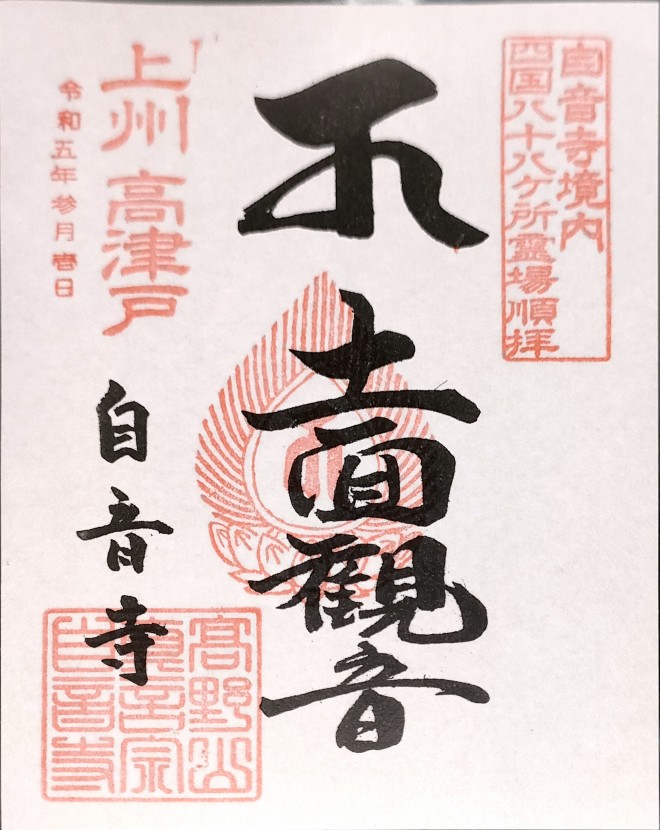 自音寺境内
四国八十八ケ所霊場順拝
十一面觀音
上州 高津戸
令和五年参月壱日
自音寺
高野山
真言宗
自音寺